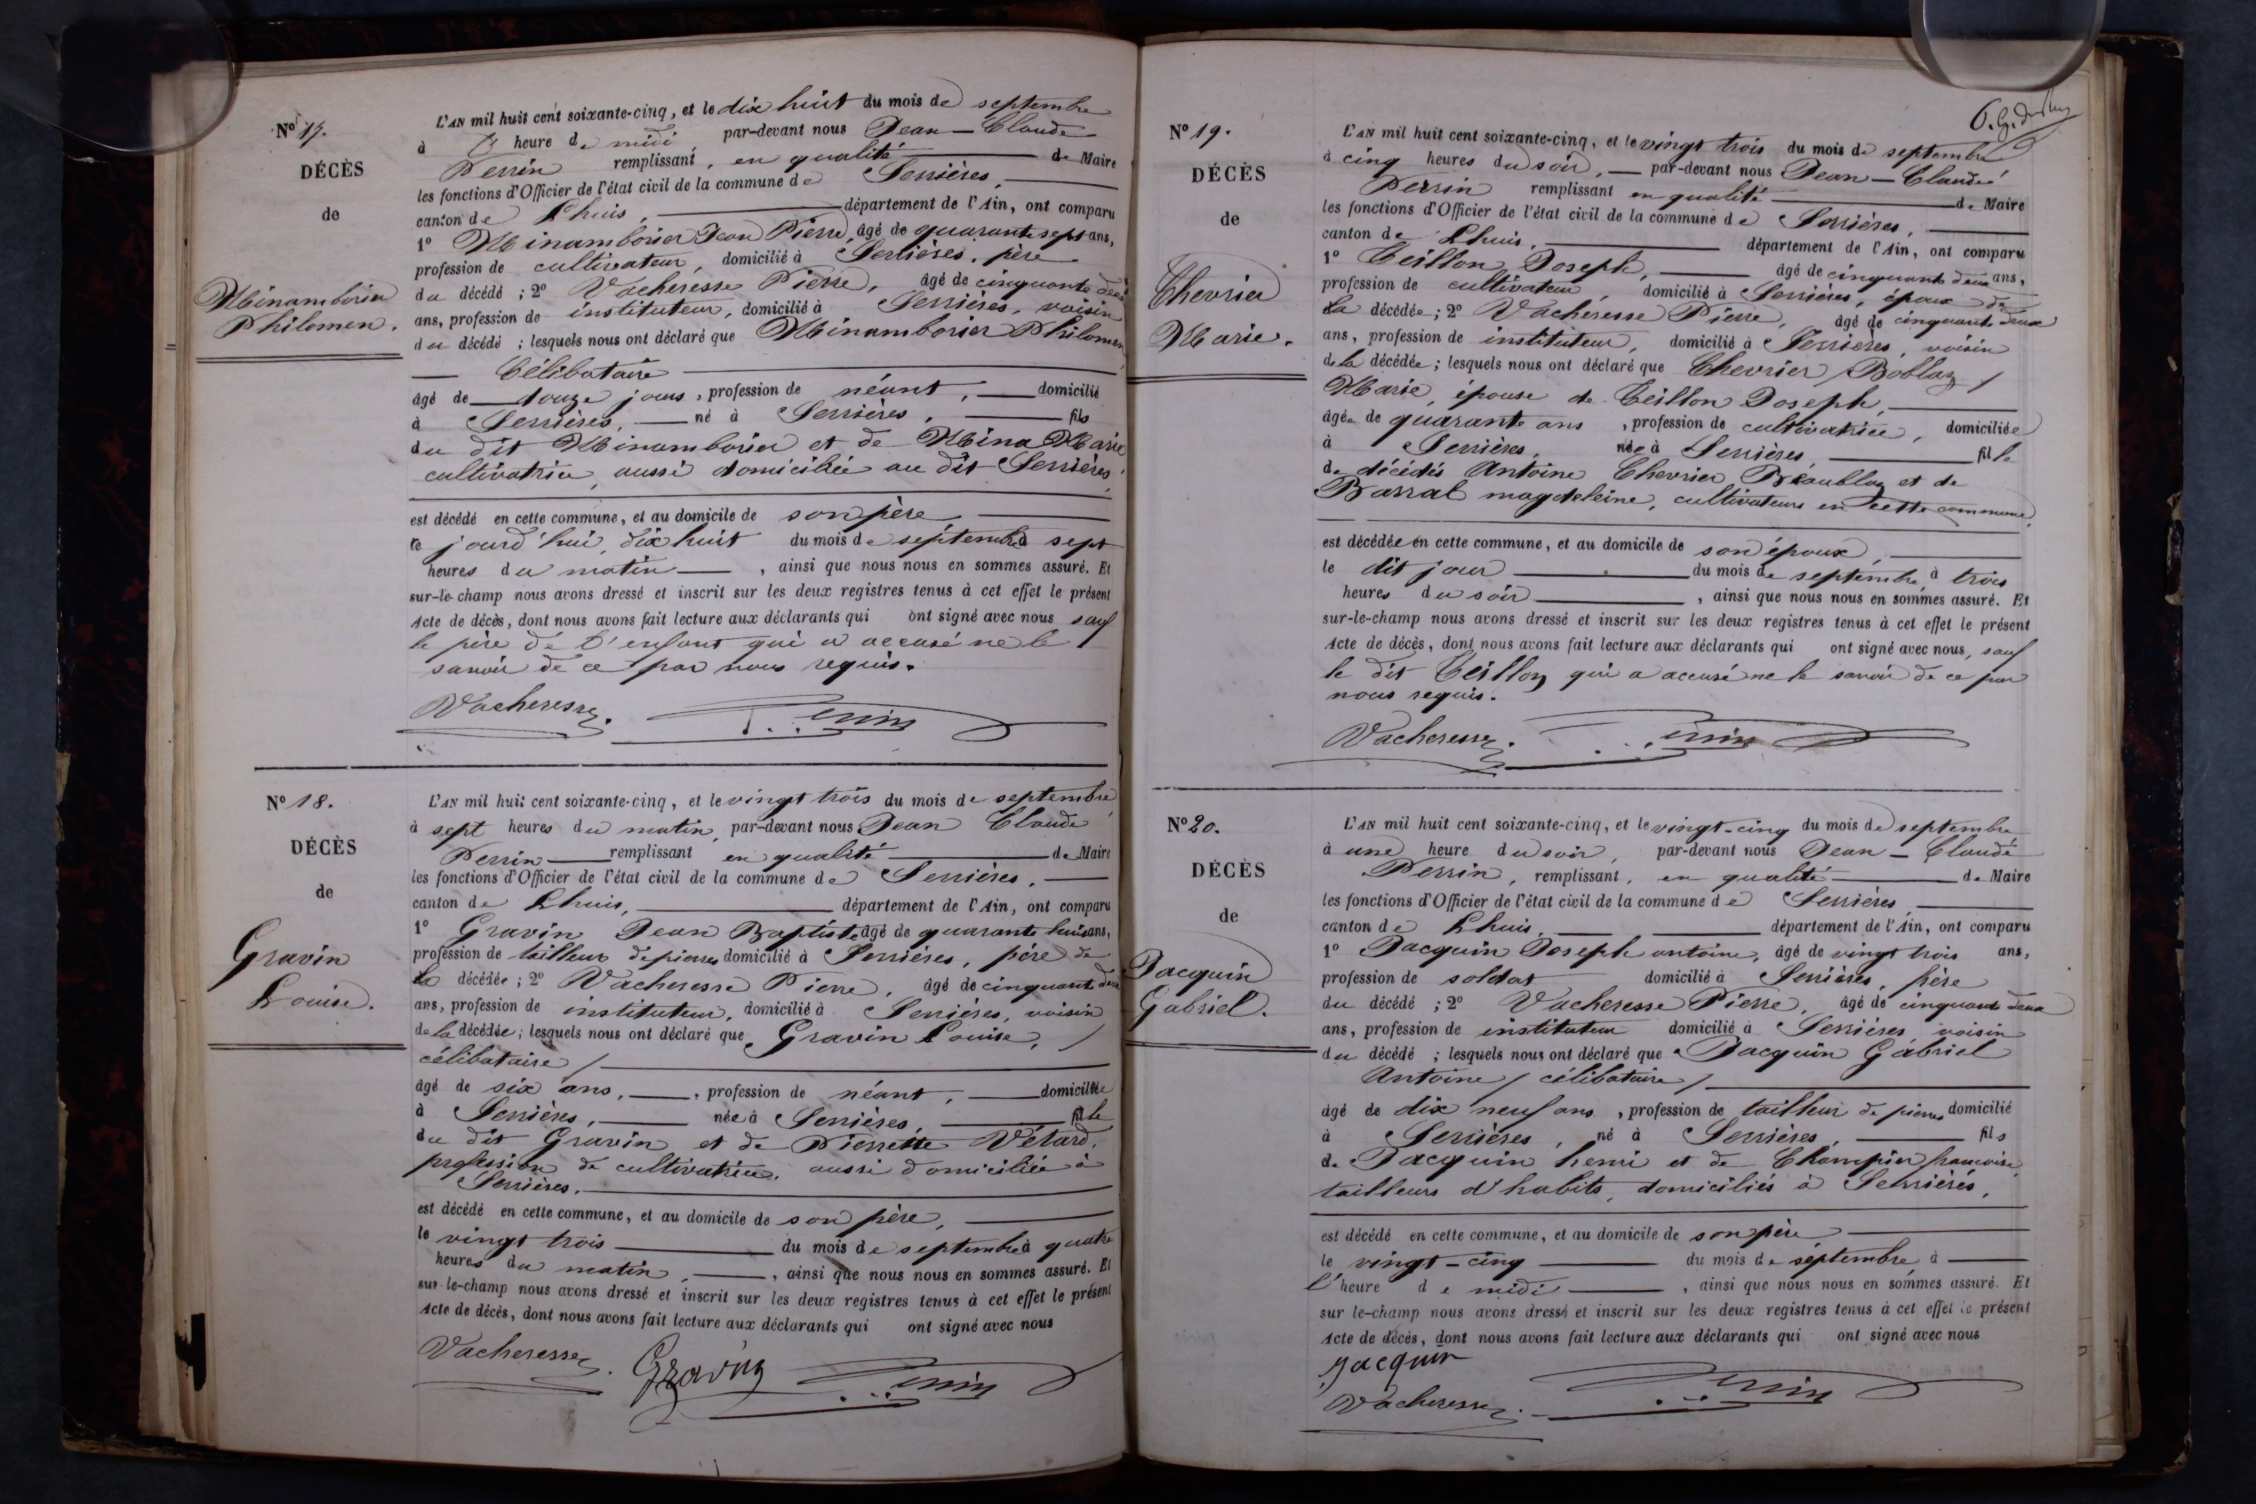 Nº 17.
DÉCÈS
de
Minamborier
Philomen.
L'AN mil huit cent soixante-cinq, et le dix huit du mois de septembre
à heure de midi par-devant nous Jean-Claude
Perrin remplissant, en qualité de Maire
les fonctions d'Officier de l'état civil de la commune de Serrières,
canton de Lhuis, département de l'Ain, ont comparu
1º Minamborier Jean Pierre, âgé de quarante sept ans,
profession de cultivateur, domicilié à Serrières, père
du décédé ; 2º Vacheresse Pierre, âgé de cinquante deux
ans, profession de instituteur, domicilié à Serrières, voisin
du décédé ; lesquels nous ont déclaré que Minamborier Philomen,
Célibataire
âgé de douze jours, profession de néant, domicilié
à Serrières, né à Serrières, fils
du dit Minamborier et de Mina Marie
cultivatrice, aussi domiciliée au dit Serrières,
est décédé en cette commune, et au domicile de son père,
ce jourd'hui, dix huit du mois de septembre à sept
heures du matin, ainsi que nous nous en sommes assuré. Et
sur-le-champ nous avons dressé et inscrit sur les deux registres tenus à cet effet le présent
Acte de décès, dont nous avons fait lecture aux déclarants qui ont signé avec nous sauf
le père de l'enfant qui a accusé ne le
savoir de ce par nous requis.
Vacheresse. Perrin
Nº 18.
DÉCÈS
de
Gravin
Louise.
L'AN mil huit cent soixante-cinq, et le vingt trois du mois de septembre
à sept heures du matin, par-devant nous Jean Claude
Perrin remplissant en qualité de Maire
les fonctions d'Officier de l'état civil de la commune de Serrières,
canton de Lhuis, département de l'Ain, ont comparu
1º Gravin Jean Baptiste âgé de quarante huit ans,
profession de tailleur de pierres domicilié à Serrières, père de
la décédée ; 2º Vacheresse Pierre, âgé de cinquante deux
ans, profession de instituteur, domicilié à Serrières, voisin
de la décédée ; lesquels nous ont déclaré que Gravin Louise, /
célibataire /
âgé de six ans, profession de néant, domiciliée
à Serrières, née à Serrières, fille
du dit Gravin et de Pierrette Vétard,
profession de cultivatrice, aussi domiciliée à
Serrières.
est décédé en cette commune, et au domicile de son père,
le vingt trois du mois de septembre à quatre
heures du matin, ainsi que nous nous en sommes assuré. Et
sur-le-champ nous avons dressé et inscrit sur les deux registres tenus à cet effet le présent
Acte de décès, dont nous avons fait lecture aux déclarants qui ont signé avec nous
Vacheresse. Gravin Perrin
Nº 19.
DÉCÈS
de
Chevrier
Marie.
L'AN mil huit cent soixante-cinq, et le vingt trois du mois de septembre
à cinq heures du soir, par-devant nous Jean-Claude
Perrin remplissant en qualité de Maire
les fonctions d'Officier de l'état civil de la commune de Serrières,
canton de Lhuis, département de l'Ain, ont comparu
1º Teillon Joseph, âgé de cinquante deux ans,
profession de cultivateur, domicilié à Serrières, époux de
la décédée ; 2º Vacheresse Pierre, âgé de cinquante deux
ans, profession de instituteur, domicilié à Serrières, voisin
de la décédée ; lesquels nous ont déclaré que Chevrier / Boblaz /
Marie, épouse de Teillon Joseph,
âgée de quarante ans, profession de cultivatrice, domiciliée
à Serrières, née à Serrières, fille
de décédés Antoine Chevrier Béaublaz et de
Barral magdeleine, cultivateurs en cette commune,
est décédée en cette commune, et au domicile de son époux,
le dit jour du mois de septembre à trois
heures du soir, ainsi que nous nous en sommes assuré. Et
sur-le-champ nous avons dressé et inscrit sur les deux registres tenus à cet effet le présent
Acte de décès, dont nous avons fait lecture aux déclarants qui ont signé avec nous, sauf
le dit Teillon qui a accusé ne le savoir de ce par
nous requis.
Vacheresse. Perrin
Nº 20.
DÉCÈS
de
Jacquin
Gabriel.
L'AN mil huit cent soixante-cinq, et le vingt-cinq du mois de septembre
à une heure du soir, par-devant nous Jean-Claude
Perrin, remplissant, en qualité de Maire
les fonctions d'Officier de l'état civil de la commune de Serrières
canton de Lhuis, département de l'Ain, ont comparu
1º Jacquin Joseph antoine, âgé de vingt trois ans,
profession de soldat domicilié à Serrières, père
du décédé ; 2º Vacheresse Pierre, âgé de cinquante deux
ans, profession de instituteur domicilié à Serrières voisin
du décédé ; lesquels nous ont déclaré que Jacquin Gabriel
Antoine / célibataire /
âgé de dix neuf ans, profession de tailleur de pierres domicilié
à Serrières, né à Serrières, fils
de Jacquin henri et de Champier francoise,
tailleurs d'habits, domiciliés à Serrières,
est décédé en cette commune, et au domicile de son père,
le vingt-cinq du mois de septembre à
l'heure de midi, ainsi que nous nous en sommes assuré. Et
sur le-champ nous avons dressé et inscrit sur les deux registres tenus à cet effet le présent
Acte de décès, dont nous avons fait lecture aux déclarants qui ont signé avec nous
Jacquin
Vacheresse. Perrin